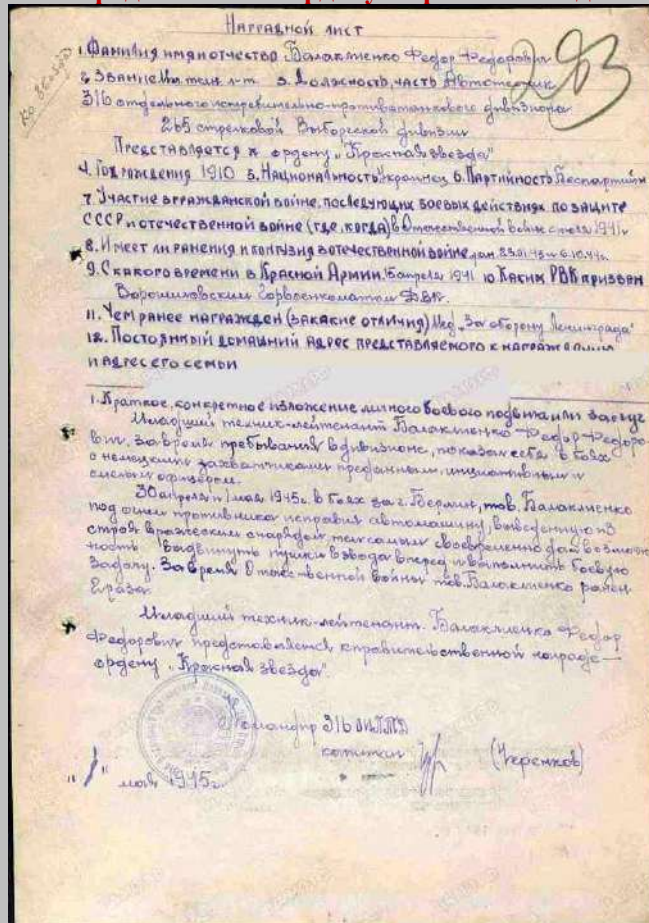 Наградной лист
1. Фамилия имя отчество Балаклиенко Федор Федорович
2. Звание Мл. техн. л-т. 3. Должность, часть Автотехник
316 отдельного истребительно-противотанкового дивизиона
265 стрелковой Выборгской дивизии
Представляется к ордену „Красная звезда"
4. Год рождения 1910 5. Национальность украинец 6. Партийность беспартийн
7. Участие в гражданской войне, последующих боевых действиях по защите
СССР и отечественной войне (где, когда) в Отечественной войне с июля 1941г
8. Имеет ли ранения и контузия в отечественной войне ран. 23.01.43 и 6.10.44г.
9. С какого времени в Красной Армии. 15 апреля 1941 10. Каким РВК призван
Ворошиловским Горвоенкоматом ДВК.
11. Чем ранее награжден (за какие отличия) Мед. „За оборону Ленинграда"
12. Постоянный домашний адрес представляемого к награждению
и адрес его семьи
1. Краткое, конкретное изложение личного боевого подвига или заслуг
Младший техник-лейтенант Балаклиенко Федор Федоро-
вич. За время пребывания в дивизионе, показал себя в боях
с немецкими захватчиками преданным, инициативным и
смелым офицером.
30 апреля и 1 мая 1945г. в боях за г. Берлин, тов. Балаклиенко
под огнем противника исправил автомашину, выведенную из
строя вражеским снарядом тем самым своевременно дал возмож-
ность выдвинуть пушки взвода вперед и выполнить боевую
задачу. За время Отечественной войны тов. Балаклиенко ранен
2 раза.
Младший техник-лейтенант. Балаклиенко Федор
Федорович представляется к правительственной награде —
ордену „Красная звезда".
Командир 316 ОИПТД
капитан (Черенков)
" 1 " мая 1945г.